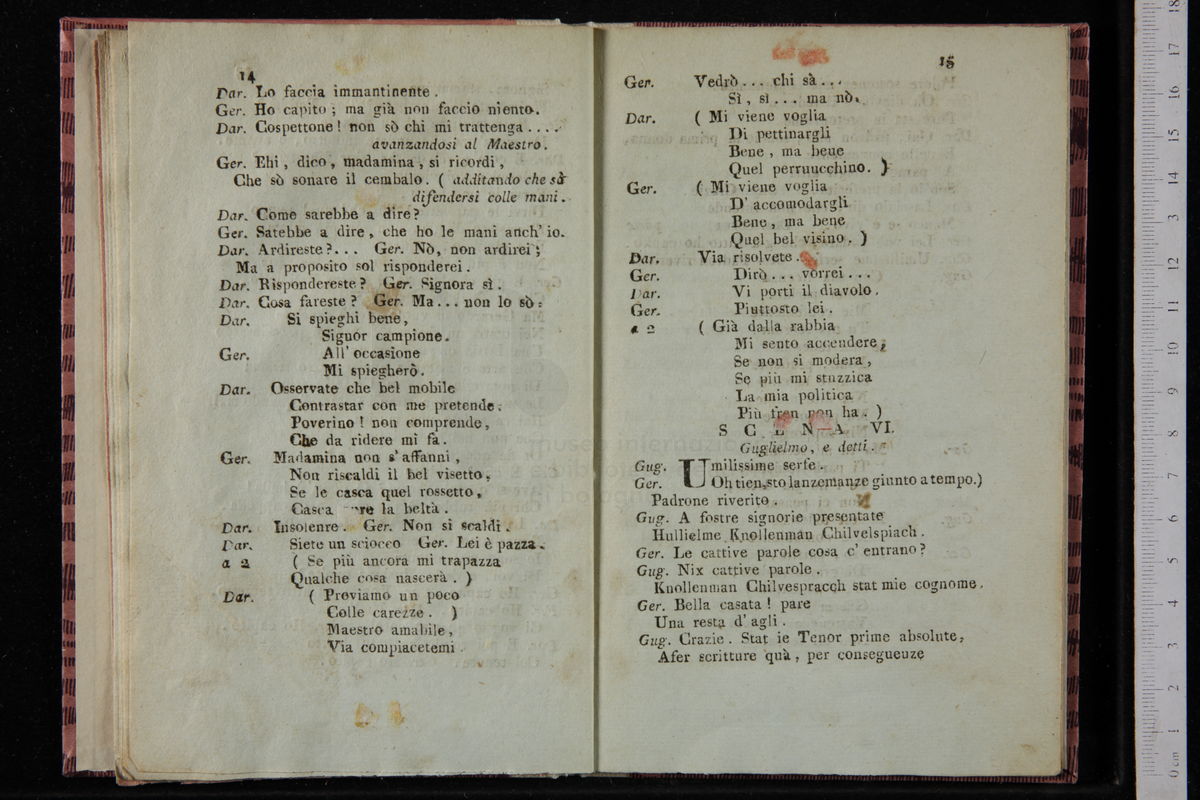 14
Dar. Lo faccia immantinente.
Ger. Ho capito; ma già non faccio niento.
Dar. Cospettone! non sò chi mi trattenga ....
avanzandosi al Maestro.
Ger. Ehi, dico, madamina, si ricordi,
Che sò sonare il cembalo. ( additando che sà
difendersi colle mani.
Dar. Come sarebbe a dire?
Ger. Satebbe a dire, che ho le mani anch' io.
Dar. Ardireste?... Ger. Nò, non ardirei;
Ma a proposito sol risponderei.
Dar. Rispondereste? Ger. Signora sì.
Dar. Cosa fareste? Ger. Ma... non lo sò.
Dar. Si spieghi bene,
Signor campione.
Ger. All' occasione
Mi spiegherò.
Dar. Osservate che bel mobile
Contrastar con me pretende.
Poverino! non comprende,
Che da ridere mi fa.
Ger. Madamina non s' affanni,
Non riscaldi il bel visetto,
Se le casca quel rossetto,
Casca la beltà.
Dar. Insolenre. Ger. Non si scaldi.
Dar. Siete un sciocco Ger. Lei è pazza.
a 2 ( Se più ancora mi trapazza
Qualche cosa nascerà. )
Dar. ( Proviamo un poco
Colle carezze. )
Maestro amabile,
Via compiacetemi.
15
Ger. Vedrò... chi sà...
Sì, sì... ma nò.
Dar. ( Mi viene voglia
Di pettinargli
Bene, ma beue
Quel perruucchino. )
Ger. ( Mi viene voglia
D' accomodargli
Bene, ma bene
Quel bel visino. )
Dar. Via risolvete.
Ger. Dirò... vorrei...
Dar. Vi porti il diavolo.
Ger. Piuttosto lei.
a 2 ( Già dalla rabbia
Mi sento accendere;
Se non si modera,
Se più mi stuzzica
La mia politica
Più fren non ha. )
SCENA VI.
Guglielmo, e detti.
Gug. Umilissime serfe.
Ger. Oh tien, sto lanzemanze giunto a tempo.)
Padrone riverito.
Gug. A fostre signorie presentate
Hullielme Knollenman Chilvelspiach.
Ger. Le cattive parole cosa c' entrano?
Gug. Nix cattive parole.
Knollenman Chilvespracch stat mie cognome.
Ger. Bella casata! pare
Una resta d' agli.
Gug. Crazie. Stat ie Tenor prime absolute,
Afer scritture quà, per consegueuze